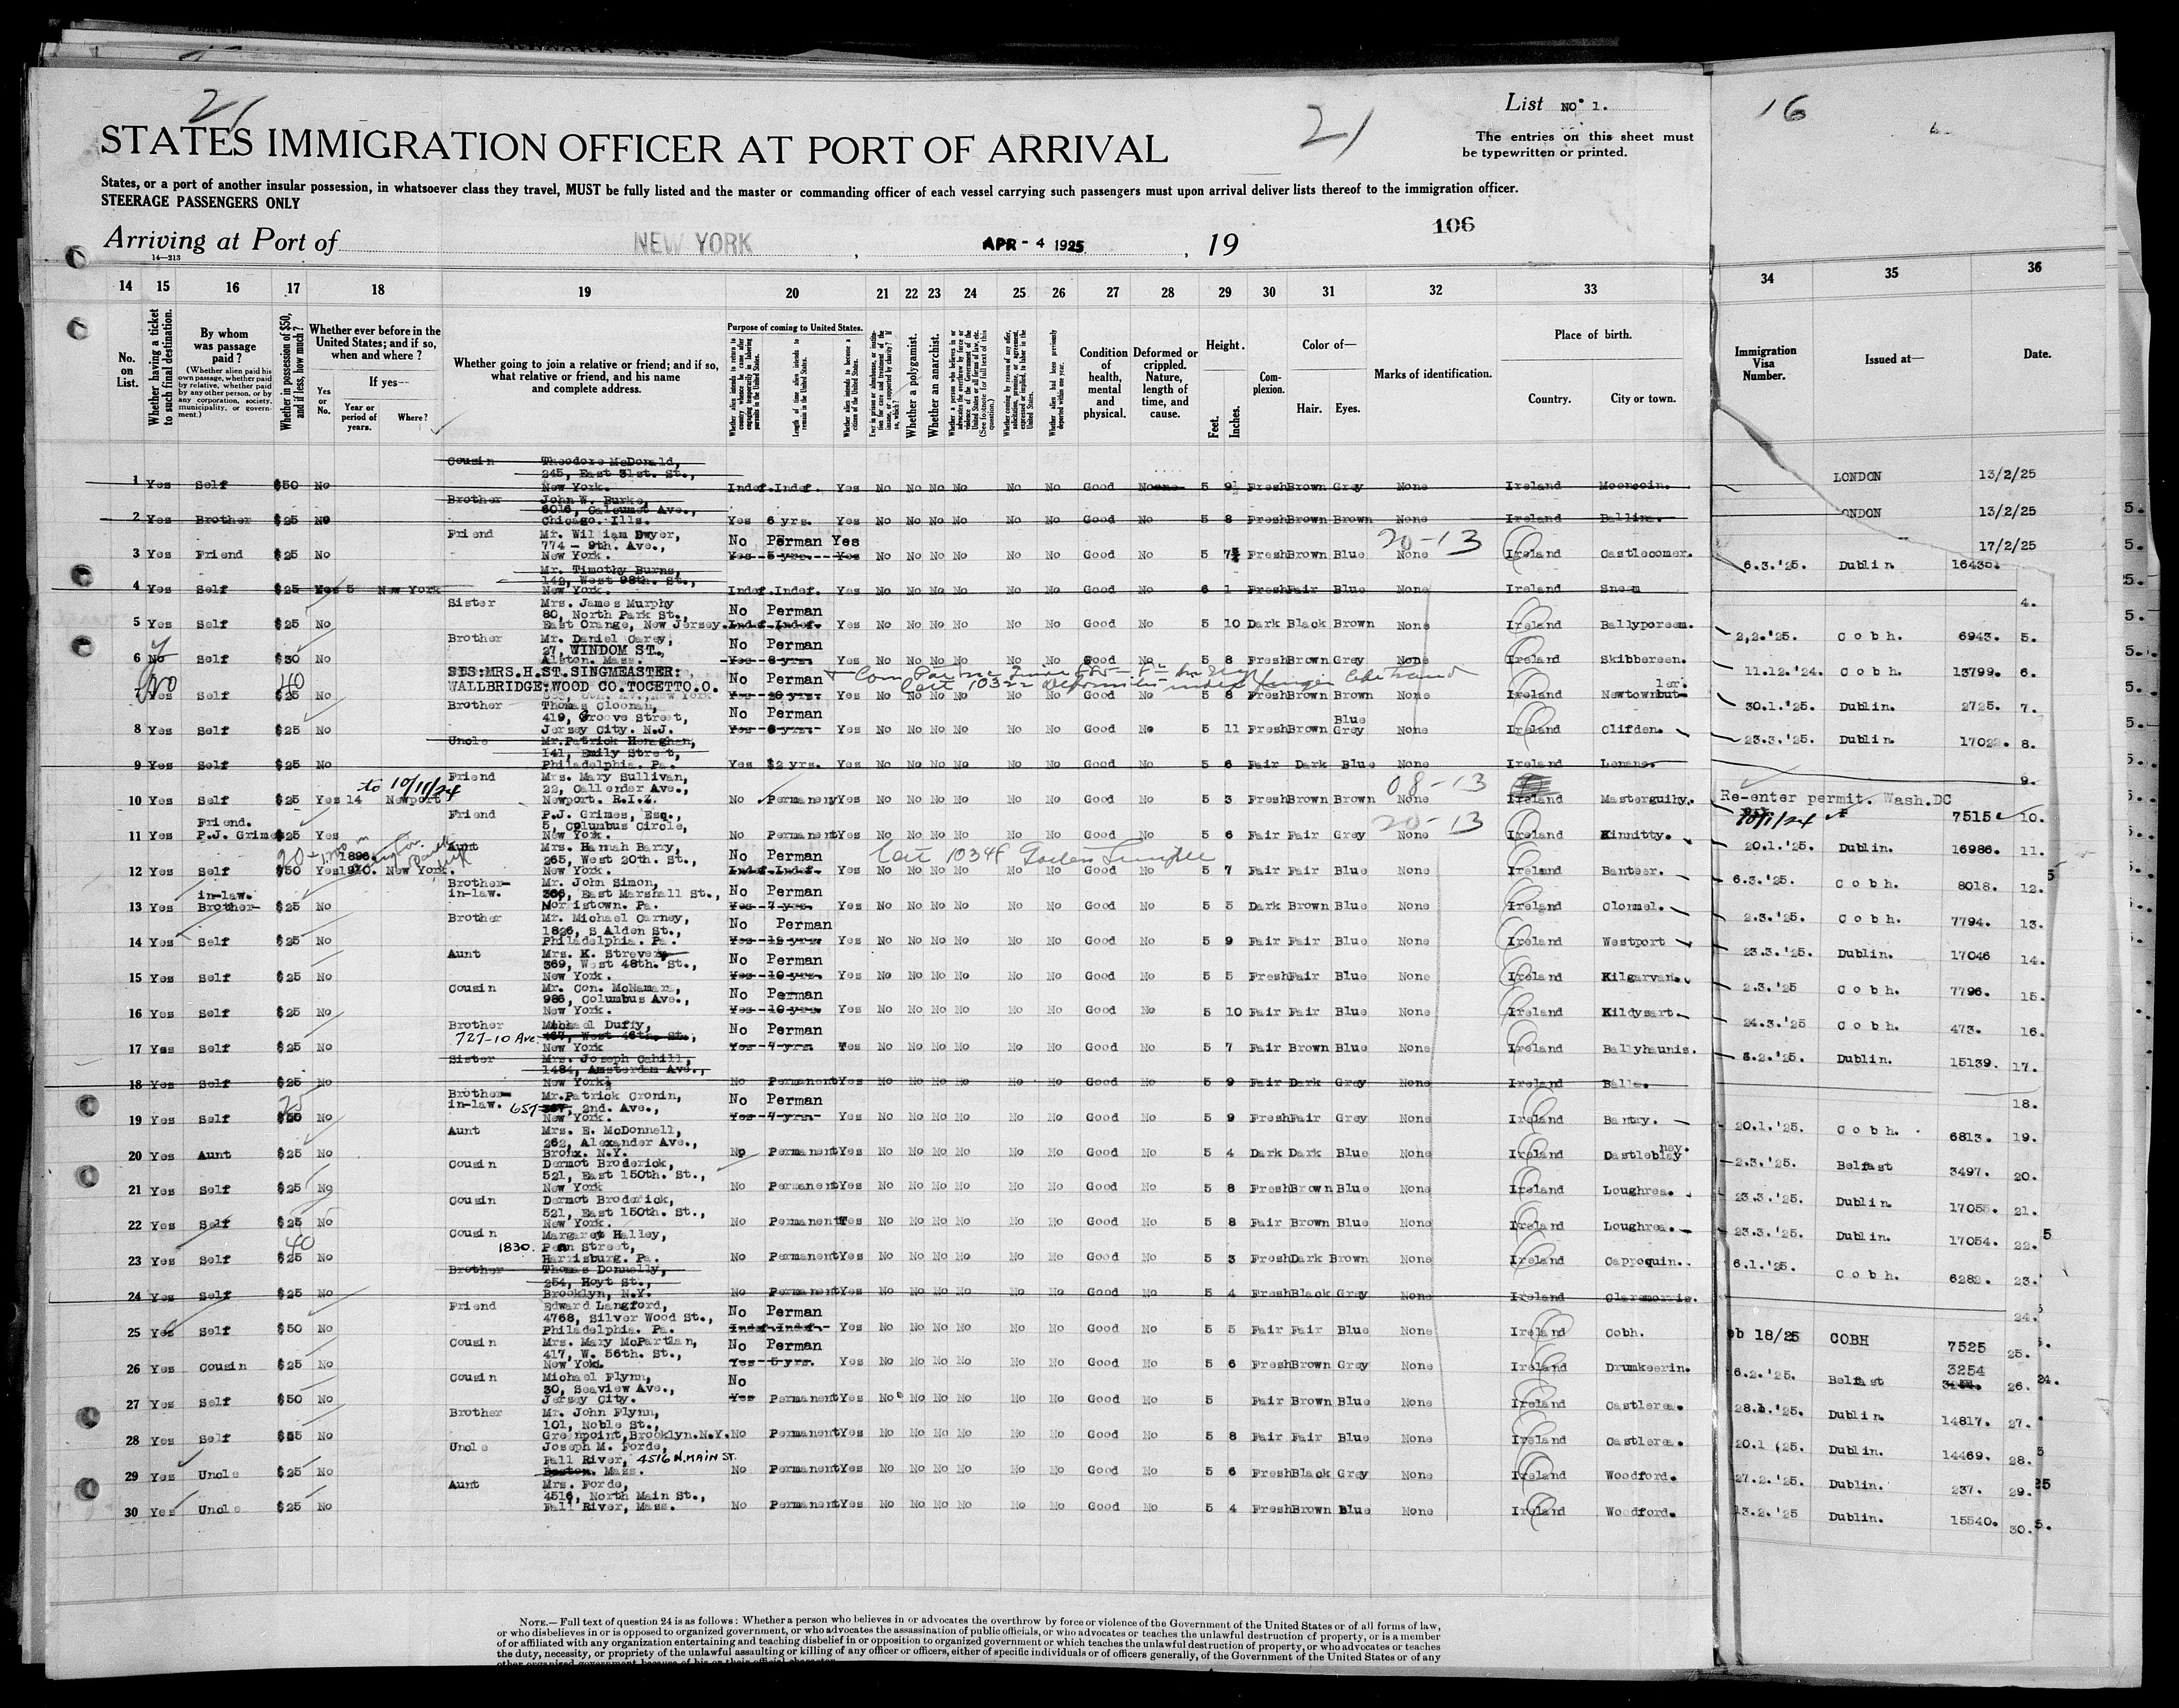 21
21
List NO. 1.
16
The entries on this sheet must
be typewritten or printed.
STATES IMMIGRATION OFFICER AT PORT OF ARRIVAL
States, or a port of another insular possession, in whatsoever class they travel, MUST be fully listed and the master or commanding officer of each vessel carrying such passengers must upon arrival deliver lists thereof to the immigration officer.
STEERAGE PASSENGERS ONLY
106
Arriving at Port of NEW YORK , APR - 4 1925 , 19
14—313
14 15 16 17 18 19 20 21 22 23 24 25 26 27 28 29 30 31 32 33 34 35 36
No. on List.
Whether having a ticket to such final destination.
By whom was passage paid?
(Whether alien paid his own passage, whether paid by relative, whether paid by any other person, or by any corporation, society, municipality, or government.)
Whether in possession of $50, and if less, how much?
Whether ever before in the United States; and if so, when and where?
Yes or No.
If yes—
Year or period of years.
Where?
Whether going to join a relative or friend; and if so, what relative or friend, and his name and complete address.
Purpose of coming to United States.
Whether a polygamist.
Whether an anarchist.
Condition of health, mental and physical.
Deformed or crippled. Nature, length of time, and cause.
Height.
Feet. Inches.
Complexion.
Color of—
Hair. Eyes.
Marks of identification.
Place of birth.
Country. City or town.
Immigration Visa Number.
Issued at—
Date.
Cousin Theodore McDonald,
245, East 31st. St.,
1 Yes Self $50 No New York. Indef. Indef. Yes No No No No No No Good None 5 9½ Fresh Brown Grey None Ireland Mooncoin. LONDON 13/2/25
Brother John W. Burke,
6016, Calumet Ave.,
2 Yes Brother $25 No Chicago. Ills. Yes 6 yrs. Yes No No No No No No Good No 5 8 Fresh Brown Brown None Ireland Ballina. ONDON 13/2/25
Friend Mr. William Dwyer,
774 - 9th. Ave., No Perman Yes 20-13 17/2/25
3 Yes Friend $25 No New York. Yes 5 yrs. Yes No No No No No No Good No 5 7½ Fresh Brown Blue None Ireland Castlecomer. 6.3.'25. Dublin 16430.
Mr. Timothy Burns,
142, West 98th. St.,
4 Yes Self $25 Yes 5 New York New York. Indef. Indef. Yes No No No No No No Good No 6 1 Fresh Fair Blue None Ireland Sneem 4.
Sister Mrs. James Murphy
80, North Park St., No Perman
5 Yes Self $25 No East Orange, New Jersey. Indef. Indef. Yes No No No No No No Good No 5 10 Dark Black Brown None Ireland Ballyporeen. 2,2.'25. Cobh. 6943. 5.
Brother Mr. Daniel Carey,
27, WINDOM ST., No Perman
6 No Self $30 No Alston. Mass. Yes 8 yrs. Yes No No No No No No Good No 5 8 Fresh Brown Grey None Ireland Skibbereen. 11.12.'24. Cobh. 13799. 6.
STS:MRS.H.ST.SINGMEASTER:
WALLBRIDGE:WOOD CO.TOCETTO.O. No Perman
No 40
7 Yes Self $25 No New York Yes 10 yrs. Yes No No No No No No 5 8 Fresh Brown Brown None Ireland Newtownbutler. 30.1.'25. Dublin. 2725. 7.
Brother Thomas Cloonan,
419, Groove Street, No Perman Blue
8 Yes Self $25 No Jersey City. N.J. Yes 6 yrs. Yes No No No No No No Good No 5 11 Fresh Brown Grey None Ireland Clifden. 23.3.'25. Dublin. 17022. 8.
Uncle Mr. Patrick Henaghan,
141, Emily Street,
9 Yes Self $25 No Philadelphia. Pa. Yes $2 yrs. Yes No No No No No No Good No 5 6 Fair Dark Blue None Ireland Lenane. 9.
to 10/11/24 Friend Mrs. Mary Sullivan,
22, Callender Ave., 08-13
10 Yes Self $25 Yes 14 Newport Newport. R.I.Z. No Permanent Yes No No No No No No Good No 5 3 Fresh Brown Brown None Ireland Masterguihy. Re-enter permit. Wash.DC 10/11/24 7515 10.
Friend. Friend P.J. Grimes, Esq.,
5, Columbus Circle, 20-13
11 Yes P.J. Grimes $25 Yes New York. No Permanent Yes No No No No No No Good No 5 6 Fair Fair Grey None Ireland Kinnitty. 20.1.'25. Dublin. 16986. 11.
Aunt Mrs. Hannah Barry,
20 1896. 265, West 20th. St., No Perman
12 Yes Self $50 Yes 1910. New York. New York. Indef. Indef. Yes No No No No No No Good No 5 7 Fair Fair Blue None Ireland Banteer. 6.3.'25. Cobh. 8018. 12.
in-law. Brother-in-law. Mr. John Simon,
306, East Marshall St., No Perman
13 Yes Brother- $25 No Norristown. Pa. Yes 7 yrs. Yes No No No No No No Good No 5 5 Dark Brown Blue None Ireland Clonmel. 2.3.'25. Cobh. 7794. 13.
Brother Mr. Michael Carney,
1826, S Alden St., No Perman
14 Yes Self $25 No Philadelphia. Pa. Yes 12 yrs. Yes No No No No No No Good No 5 9 Fair Fair Blue None Ireland Westport 23.3.'25. Dublin. 17046 14.
Aunt Mrs. K. Strevens
369, West 48th. St., No Perman
15 Yes Self $25 No New York. Yes 10 yrs. Yes No No No No No No Good No 5 5 Fresh Fair Blue None Ireland Kilgarvan. 2.3.'25 Cobh. 7796. 15.
Cousin Mr. Con. McNamara,
986, Columbus Ave., No Perman
16 Yes Self $25 No New York. Yes 10 yrs. Yes No No No No No No Good No 5 10 Fair Fair Blue None Ireland Kildysart. 24.3.'25 Cobh. 473. 16.
Brother Michael Duffy,
727-10 Ave 467, West 46th. St., No Perman
17 Yes Self $25 No New York Yes 4 yrs. Yes No No No No No No Good No 5 7 Fair Brown Blue None Ireland Ballyhaunis. 5.2.'25. Dublin. 15139. 17.
Sister Mrs. Joseph Cahill,
1484, Amsterdam Ave.,
18 Yes Self $25 No New York. No Permanent Yes No No No No No No Good No 5 9 Fair Dark Grey None Ireland Balla. 18.
Brother-in-law. Mr. Patrick Cronin,
25 657 2nd. Ave., No Perman
19 Yes Self $50 No New York. Yes 4 yrs. Yes No No No No No No Good No 5 9 Fresh Fair Grey None Ireland Bantry. 20.1.'25. Cobh. 6813. 19.
Aunt Mrs. E. McDonnell,
262, Alexander Ave.,
20 Yes Aunt $25 No Bronx. N.Y. No Permanent Yes No No No No No No Good No 5 4 Dark Dark Blue None Ireland Castleblayney. 2.3.'25. Belfast 3497. 20.
Cousin Dermot Broderick,
521, East 150th. St.,
21 Yes Self $25 No New York No Permanent Yes No No No No No No Good No 5 8 Fresh Brown Blue None Ireland Loughrea. 23.3.'25. Dublin. 17055. 21.
Cousin Dermot Broderick,
521, East 150th. St.,
22 Yes Self $25 No New York. No Permanent Yes No No No No No No Good No 5 8 Fair Brown Blue None Ireland Loughrea. 23.3.'25. Dublin. 17054. 22.
Cousin Margaret Halley,
40 1830. Penn Street,
23 Yes Self $25 No Harrisburg. Pa. No Permanent Yes No No No No No No Good No 5 3 Fresh Dark Brown None Ireland Cappoquin. 6.1.'25. Cobh. 6282. 23.
Brother Thomas Donnelly,
254, Hoyt St.,
24 Yes Self $25 No Brooklyn, N.Y. No Permanent Yes No No No No No No Good No 5 4 Fresh Black Grey None Ireland Claremorris. 24.
Friend Edward Langford,
4768, Silver Wood St., No Perman
25 Yes Self $50 No Philadelphia. Pa. Indef. Indef. Yes No No No No No No Good No 5 5 Fair Fair Blue None Ireland Cobh. b 18/25 COBH 7525 25.
Cousin Mrs. Mary McPartlan,
417, W. 56th. St., No Perman
26 Yes Cousin $25 No New York. Yes 5 yrs. Yes No No No No No No Good No 5 6 Fresh Brown Grey None Ireland Drumkeerin. 6.2.'25. Belfast 3254 26.
Cousin Michael Flynn,
30, Seaview Ave., No
27 Yes Self $50 No Jersey City. Yes Permanent Yes No No No No No No Good No 5 Fair Brown Blue None Ireland Castlerea. 28.1.'25. Dublin 14817. 27.
Brother Mr. John Flynn,
101, Noble St.,
28 Yes Self $25 No Greenpoint, Brooklyn. N.Y. No Permanent Yes No No No No No No Good No 5 8 Fair Fair Blue None Ireland Castlerea. 20.1.'25. Dublin. 14469. 28.
Uncle Joseph M. Forde,
Fall River, 4516 N. MAIN ST.
29 Yes Uncle $25 No Boston. Mass. No Permanent Yes No No No No No No Good No 5 6 Fresh Black Grey None Ireland Woodford. 27.2.'25. Dublin. 237. 29.
Aunt Mrs. Forde,
4516, North Main St.,
30 Yes Uncle $25 No Fall River, Mass. No Permanent Yes No No No No No No Good No 5 4 Fresh Brown Blue None Ireland Woodford. 13.2.'25 Dublin. 15540. 30.
NOTE.—Full text of question 24 is as follows: Whether a person who believes in or advocates the overthrow by force or violence of the Government of the United States or of all forms of law,
or who disbelieves in or is opposed to organized government, or who advocates the assassination of public officials, or who advocates or teaches the unlawful destruction of property, or is a member
of or affiliated with any organization entertaining and teaching disbelief in or opposition to organized government or which teaches the unlawful destruction of property, or who advocates or teaches
the duty, necessity, or propriety of the unlawful assaulting or killing of any officer or officers, either of specific individuals or of officers generally, of the Government of the United States or of any
other organized government because of his or their official character.